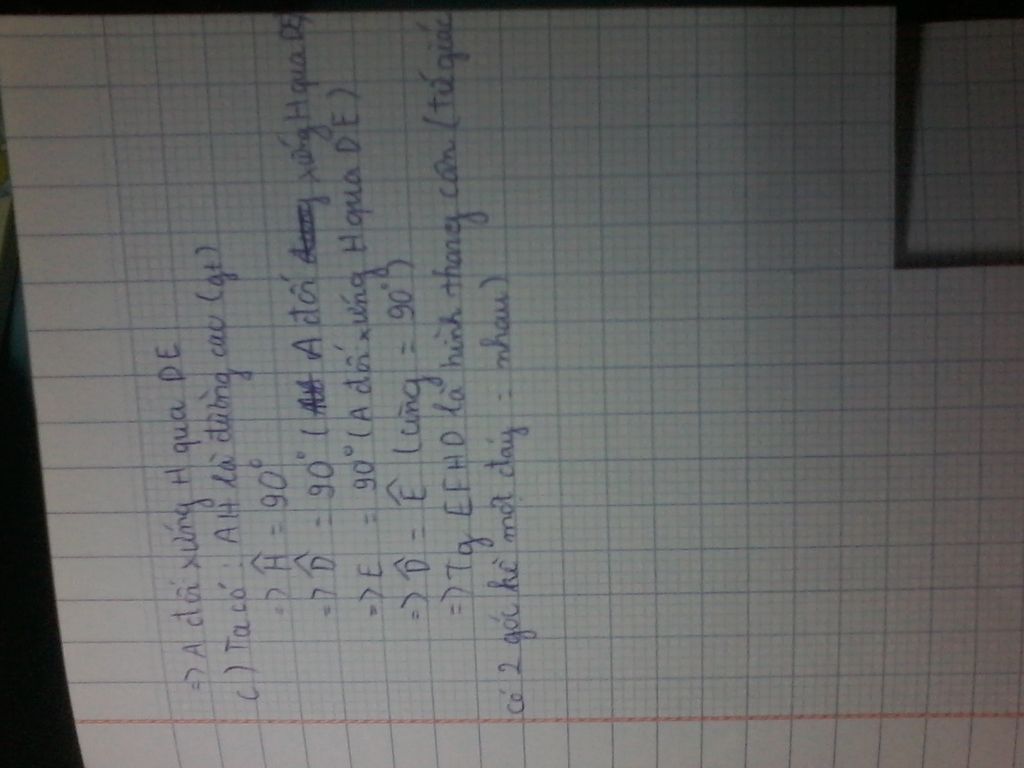 => A đối xứng H qua DE
c) Ta có: AH là đường cao (gt)
=> Ĥ = 90°
=> D̂ = 90° ( A đối xứng H qua DE
=> E = 90° (A đối xứng H qua DE)
=> D̂ = Ê (cùng = 90°)
=> Tg EFHD là hình thang cân (tứ giác
có 2 góc kề một đáy = nhau)